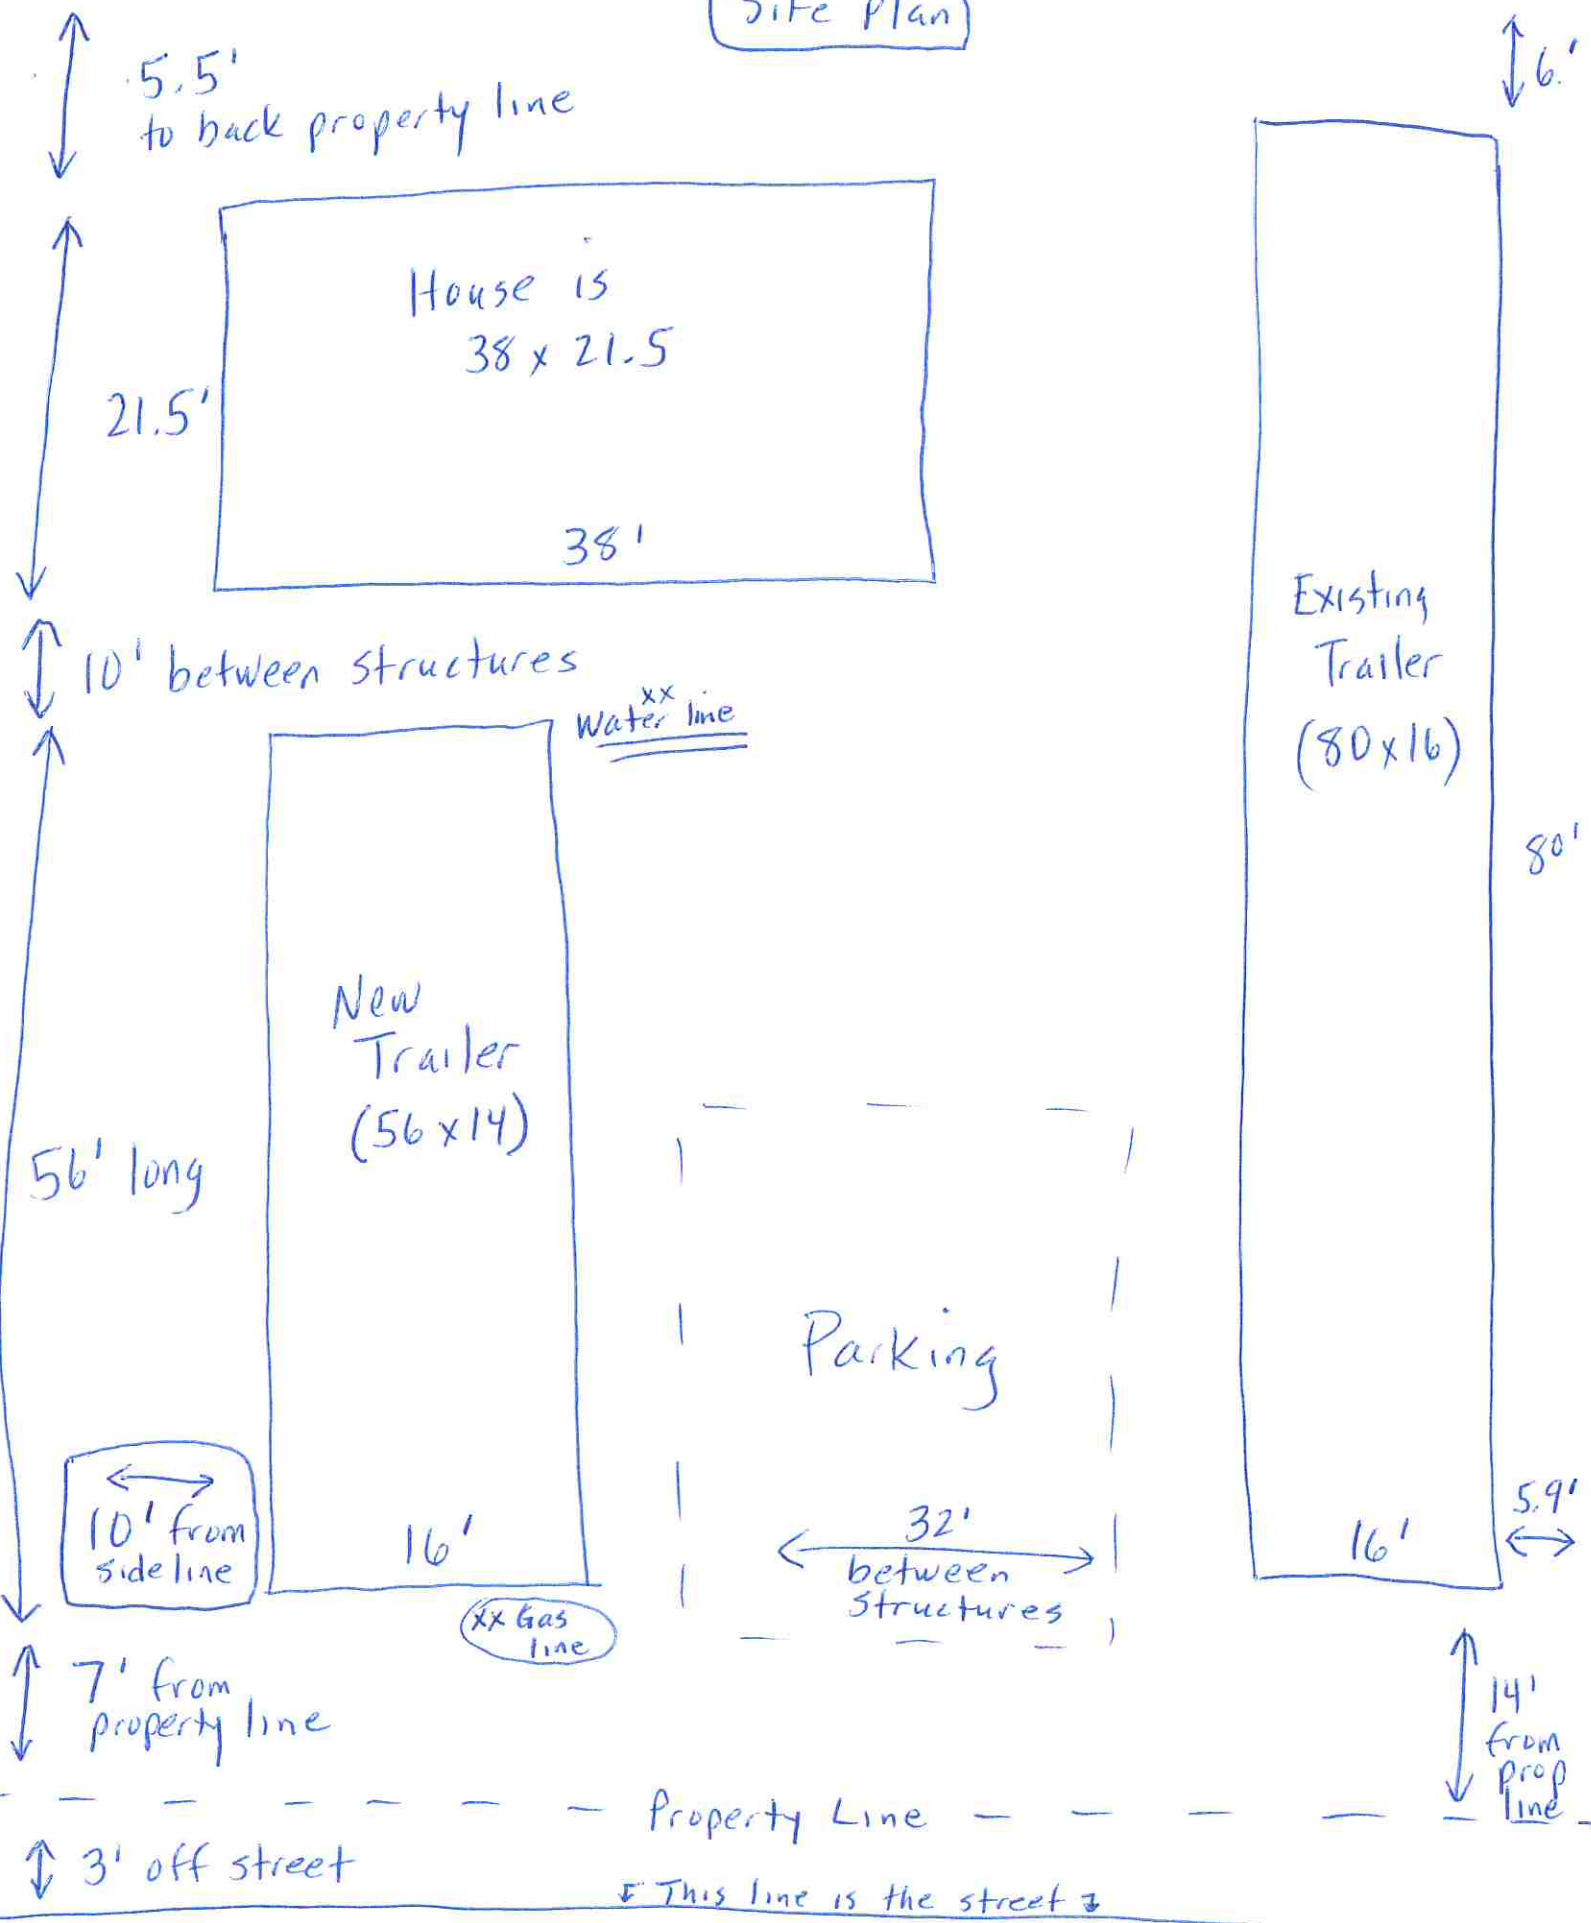 Site Plan
5.5'
to back property line
6.'
House is
38 x 21.5
21.5'
38'
10' between structures
xx
Water line
Existing
Trailer
(80x16)
80'
New
Trailer
(56x14)
56' long
Parking
10' from
side line
16'
32'
between
structures
16'
5.9'
xx Gas
line
7' from
property line
14'
from
prop
line
Property Line
3' off street
This line is the street